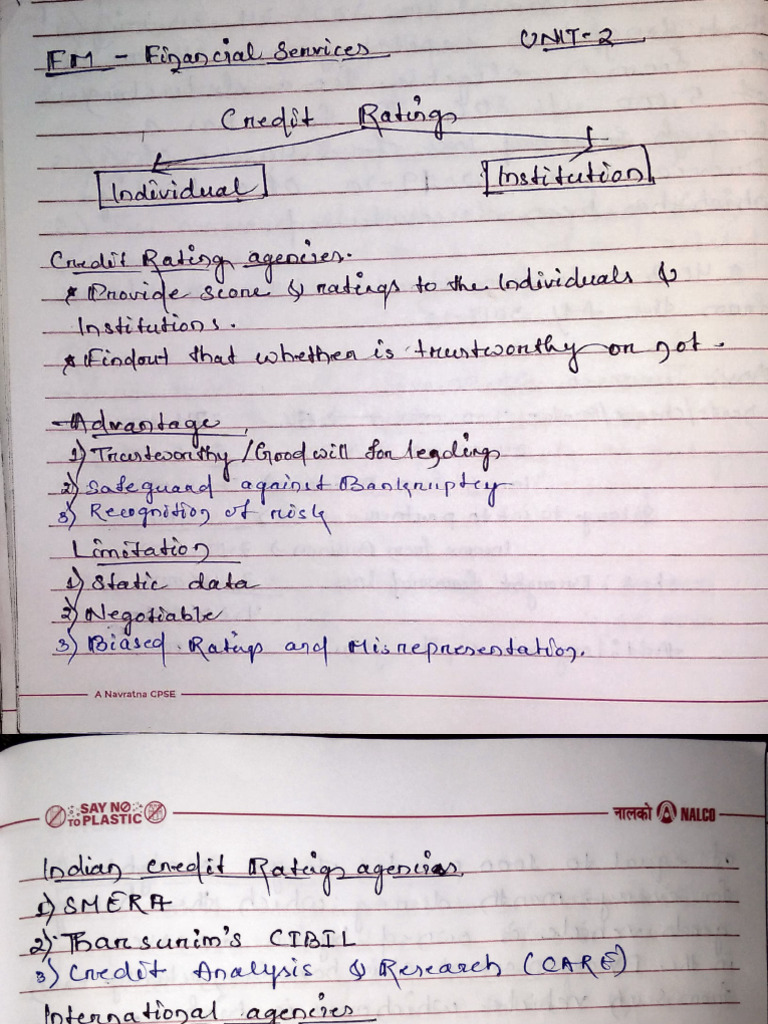 FM - Financial Services UNIT-2
Credit Ratings
Individual Institution
Credit Rating agencies.
* Provide score & ratings to the Individuals &
Institutions.
* Findout that whether is trustworthy or not.
Advantage
1) Trustworthy/Goodwill for lendings
2) Safeguard against Bankruptcy
3) Recognition of risk
Limitation
1) Static data
2) Negotiable
3) Biased Ratings and Misrepresentation.
A Navratna CPSE
SAY NO TO PLASTIC नालको NALCO
Indian credit Ratings agencies
1) SMERA
2) Transunim's CIBIL
3) Credit Analysis & Research (CARE)
International agencies